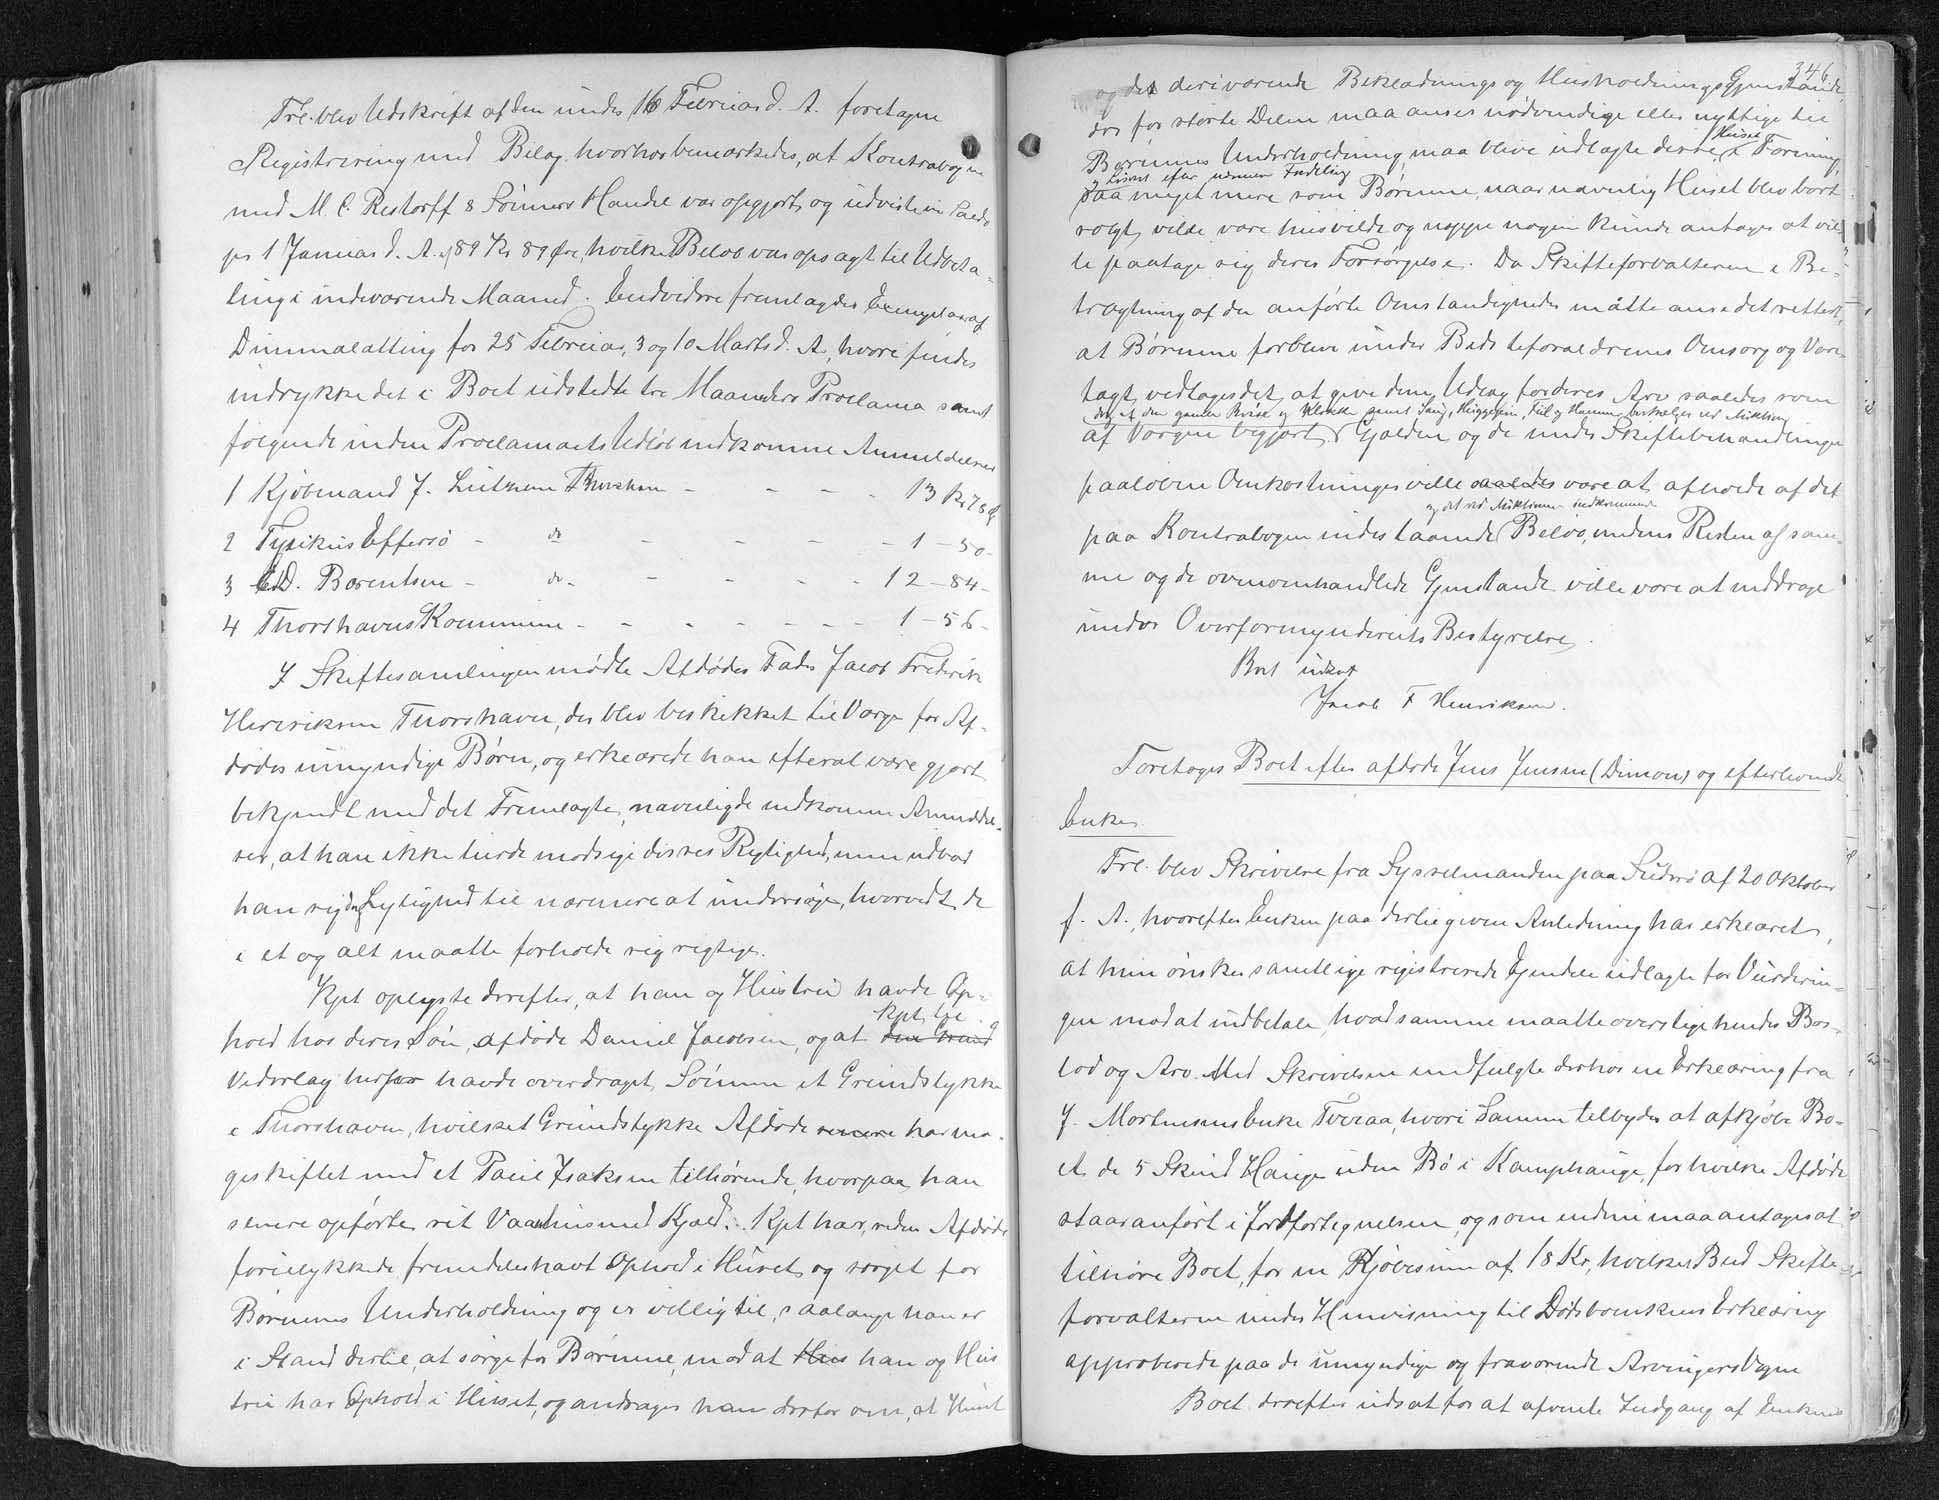 Frl. blev Udskrift af den under 16 Februar d. A. foretagne
Registrering med Bilag, hvorhos bemærkedes, at Kontrabogen
med M. C. Restorff & Sønners Handel var opgjort og udviste en Saldo
pr 1 Januar d. A. af 89 Kr 89 Øre, hvilket Beløb var opsagt til Udbeta-
ling i indeværende Maaned. Endvidere fremlagdes Exemplarer af
Dimmalætting for 25 Februar, 3 og 10 Marts d. A., hvori findes
indrykket det i Boet udstedte tre Maaneders Proclama samt
følgende inden Proclamaets Udløb indkomne Anmeldelser
1 Kjøbmand J. Lützen Thorshavn - - - - 13 Kr 78 Ø
2 Fysikus Effersø - do - - - - 1 - 50 -
3 E.D. Bærentsen - do - - - - 12 - 84 -
4 Thorshavns Kommune - - - - - - 1 - 56 -
I Skiftesamlingen mødte Afdødes Fader Jacob Frederik
Henriksen Thorshavn, der blev beskikket til Værge for Af-
dødes umyndige Børn, og erklærede han efter at være gjort
bekjendt med det Fremlagte, navnlig de indkomne Anmeldel-
ser, at han ikke turde modsige disses Rigtighed, men udbad
han sig dog Leilighed til nærmere at undersøge, hvorvidt de
i et og alt maatte forholde sig rigtige.
Kpt oplyste derefter, at han og Hustru havde Op-
hold hos deres Søn, afdøde Daniel Jacobsen, og at Kpt. til
Vederlag herfor havde overdraget Sønnen et Grundstykke
i Thorshavn, hvilket Grundstykke Afdøde senere har ma-
geskiftet med et Poul Isaksen tilhørende, hvorpaa han
senere opførte sit Vaaningshus med Kjæld. Kpt har, siden Afdøde
forulykkede fremdeles havt Ophold i Huset og sørget for
Børnenes Underholdning og er villig til, saalænge han er
i Stand dertil, at sørge for Børnene, mod at Hus han og Hus
tru har Ophold i Huset, og andrager han derfor om, at Huset
346
og det deriværende Beklædnings og Husholdnings Gjenstande,
der for største Delen maa anses nødvendige eller nyttige til
Huset
Børnenes Underholdning, maa blive udlagte disse i Forening
og Løsøret efter nærmere Fordeling
saa meget mere som Børnene, naar navnlig Huset blev bort
solgt, vilde være husvilde og neppe nogen kunde antages at vil-
le paatage sig deres Forsørgelse. Da Skifteforvalteren i Be-
tragtning af de anførte Omstændigheder måtte anse det rettest,
at Børnene forblive under Bedsteforældrenes Omsorg og Vare-
tægt, vedtoges det, at give dem Udlæg for deres Arv saaledes som
dog at den gamle Brise og Klokke samt Seng, Fiil og Hammer bortsælges ved Auktion
af Værgen begjært. Gjælden og de under Skiftebehandlingen
paaløbne Omkostninger ville saaledes være at afholde af det
og det ved Auktionen indkommende
paa Kontrabogen indestaaende Beløb, medens Resten af sam-
me og de ovenomhandlede Gjenstande ville være at inddrage
under Overformynderiets Bestyrelse.
Boet udsat
Jacob F Henriksen.
Foretoges Boet efter afdøde Jens Jensen (Dimon) og efterlevende
Enke.
Frl. blev Skrivelse fra Sysselmanden paa Suderø af 20 Oktober
f. A., hvorefter Enken paa dertil given Anledning har erklæret,
at hun ønsker samtlige registrerede Ejendele udlagte for Vurderin-
gen mod at indbetale, hvad samme maatte overstige hendes Bos-
lod og Arv. Med Skrivelsen medfulgte derhos en Erklæring fra
J. Mortensens Enke Tveraa, hvori Samme tilbyder at afkjøbe Bo-
et de 5 Skind Hauge uden Bø i Kamphauge, for hvilke Afdøde
staar anført i Jordfortegnelsen, og som endnu maa antages at
tilhøre Boet, for en Kjøbesum af 18 Kr, hvilket Bud Skifte-
forvalteren under Henvisning til Dødsboenkens Erklæring
approberede paa de umyndige og fraværende Arvingers Vegne
Boet derefter udsat for at afvente Indgang af Enkens